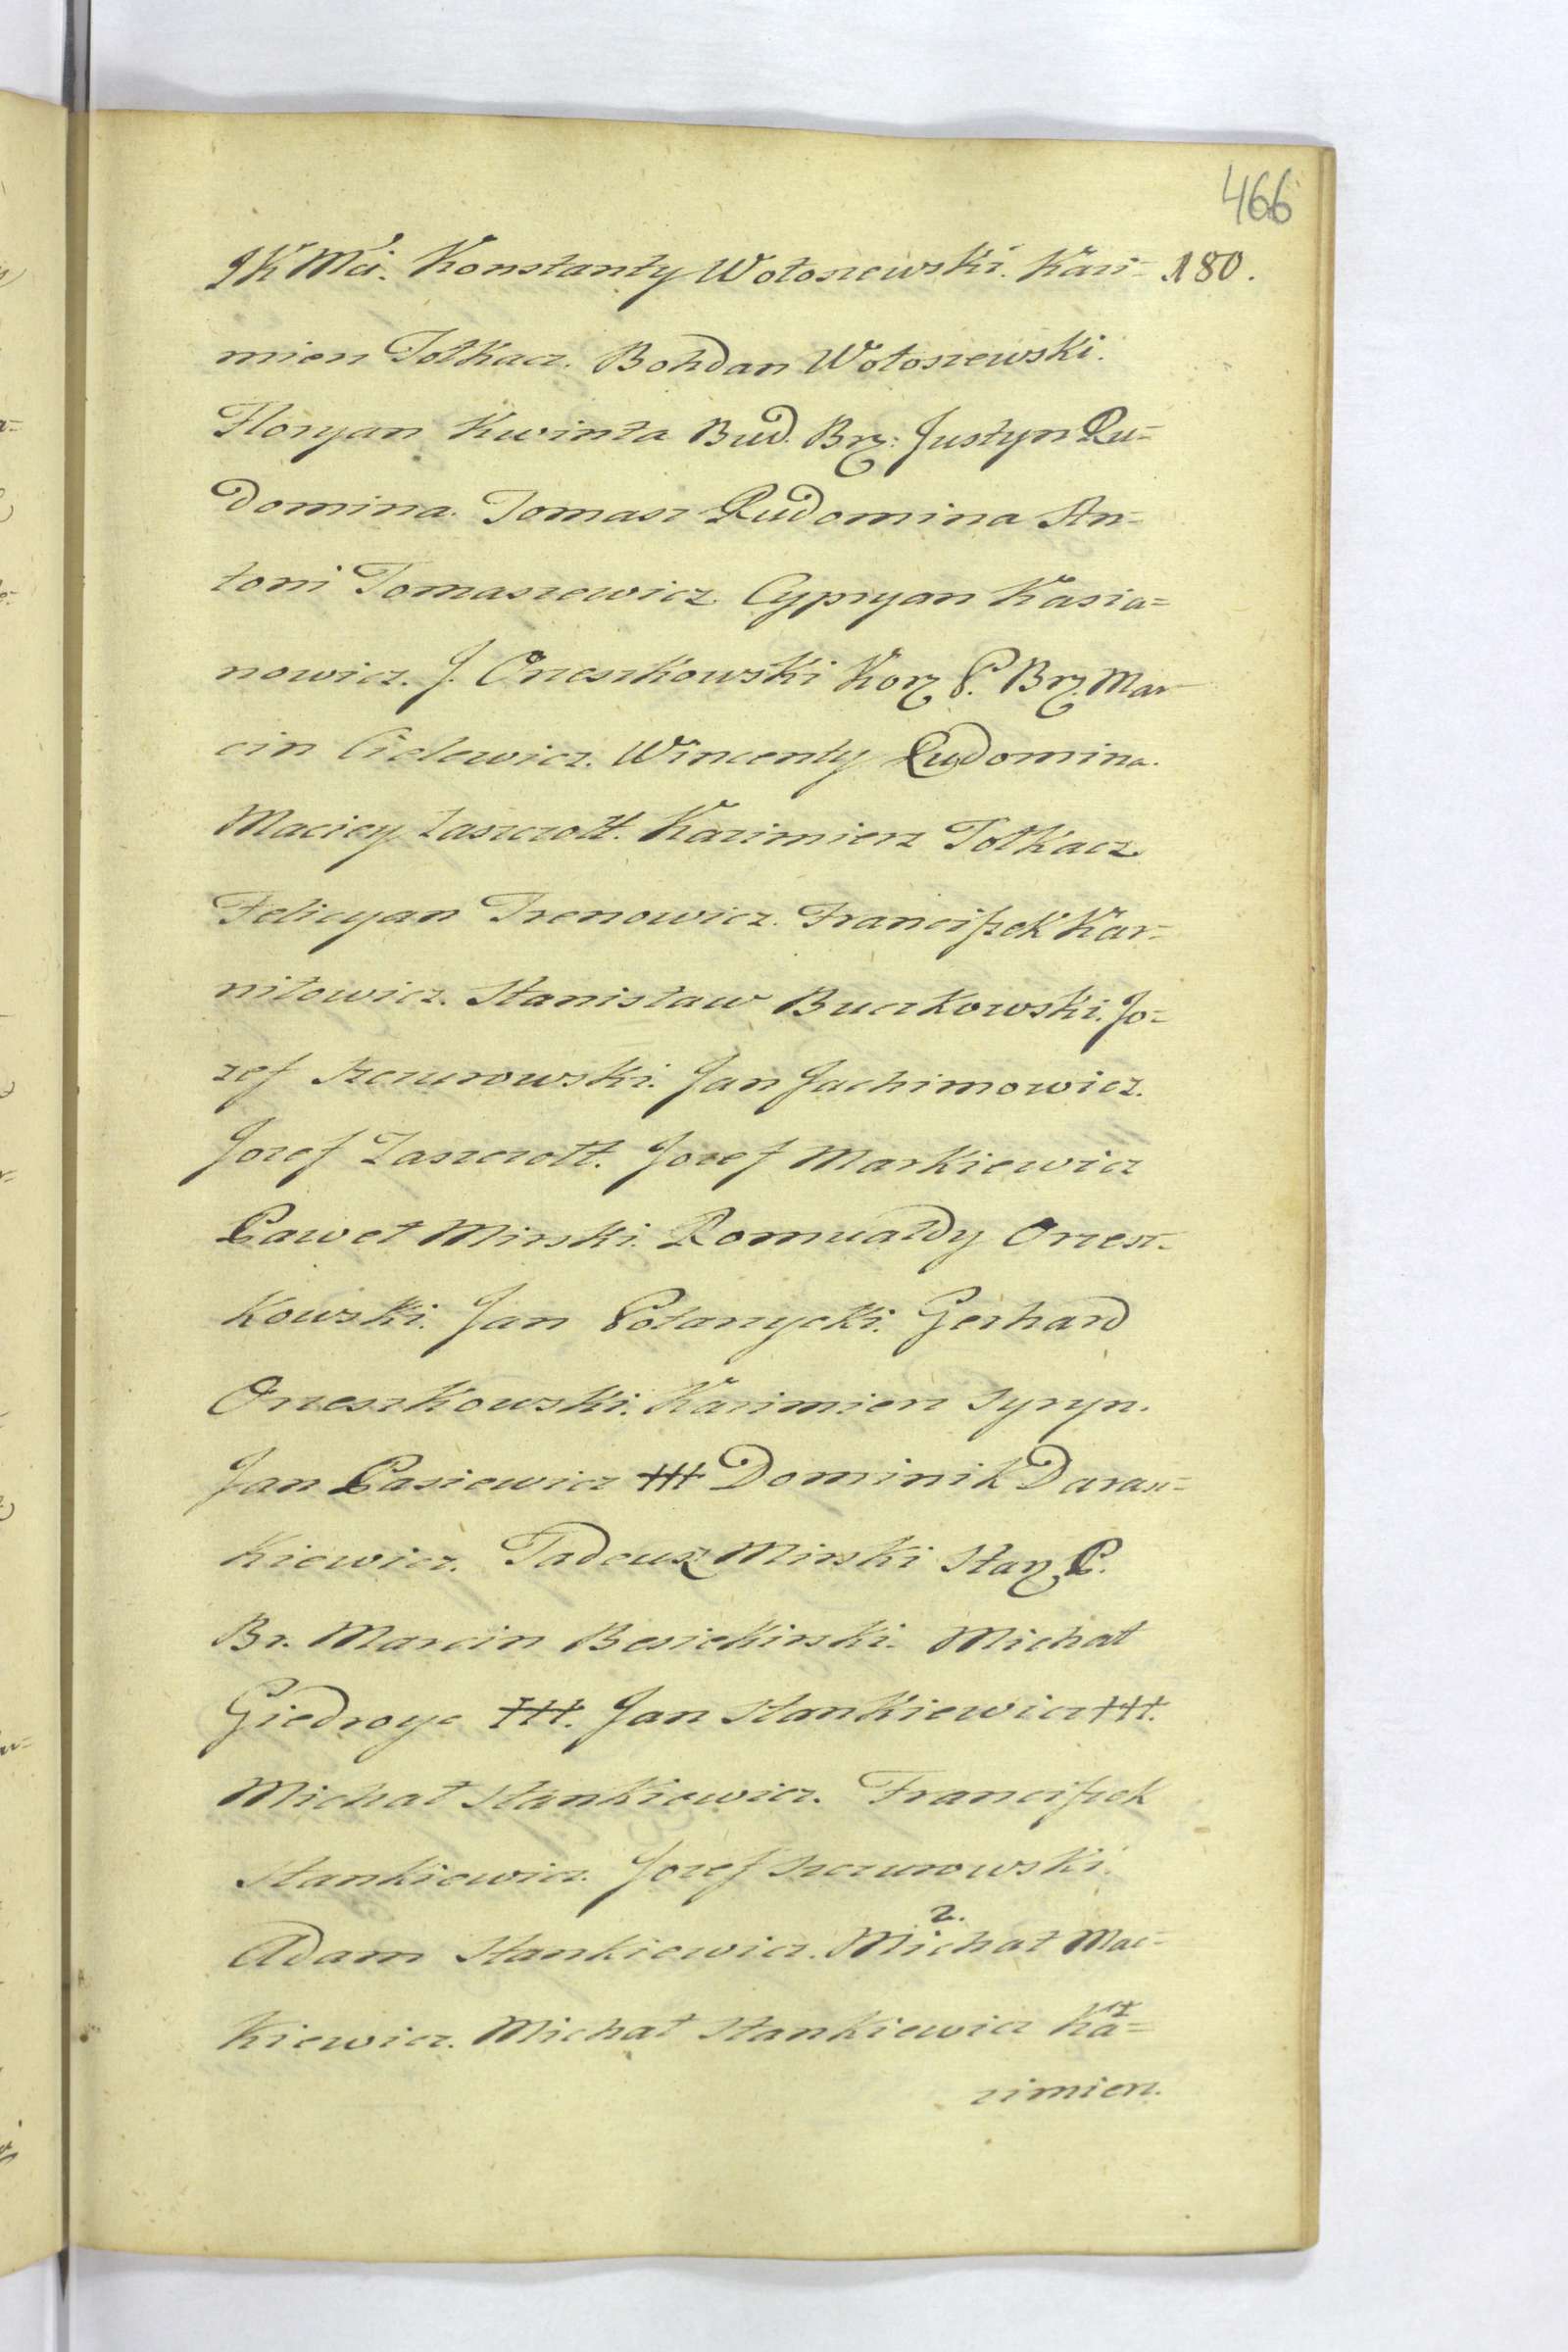 466
JKMći. Konstanty Wołoszewski. Kazi= 180.
mierz Tołkacz. Bohdan Wołoszewski.
Floryan Kwinta Bud. Brz: Justyn Ru=
domina. Tomasz Rudomina An=
toni Tomaszewicz. Cypryan Kasia=
nowicz. J. Orzeszkowski Korz P. Brz. Mar
cin Cielewicz. Wincenty Rudomina.
Maciey Zaszczołt. Kazimierz Tołkacz
Felicyan Trenowicz. Franciszek Kar=
niłowicz. Stanisław Buczkowski. Jo=
zef Szczurowski. Jan Jachimowicz.
Jozef Zaszczołt. Jozef Markiewicz
Paweł Mirski. Romuałdy Orzesz=
kowski. Jan Połanycki. Gerhard
Orzeszkowski. Kazimierz Syryn.
Jan Pasiewicz +++ Dominik Darasz=
kiewicz. Tadeusz Mirski Starz P.
Br. Marcin Besiekirski. Michał
Giedroyc +++. Jan Stankiewicz +++.
Michał Stankiewicz. Franciszek
Stankiewicz. Jozef Szczurowski.
2.
Adam Stankiewicz. Michał Mac=
kiewicz. Michał Stankiewicz Ka=
zimierz.